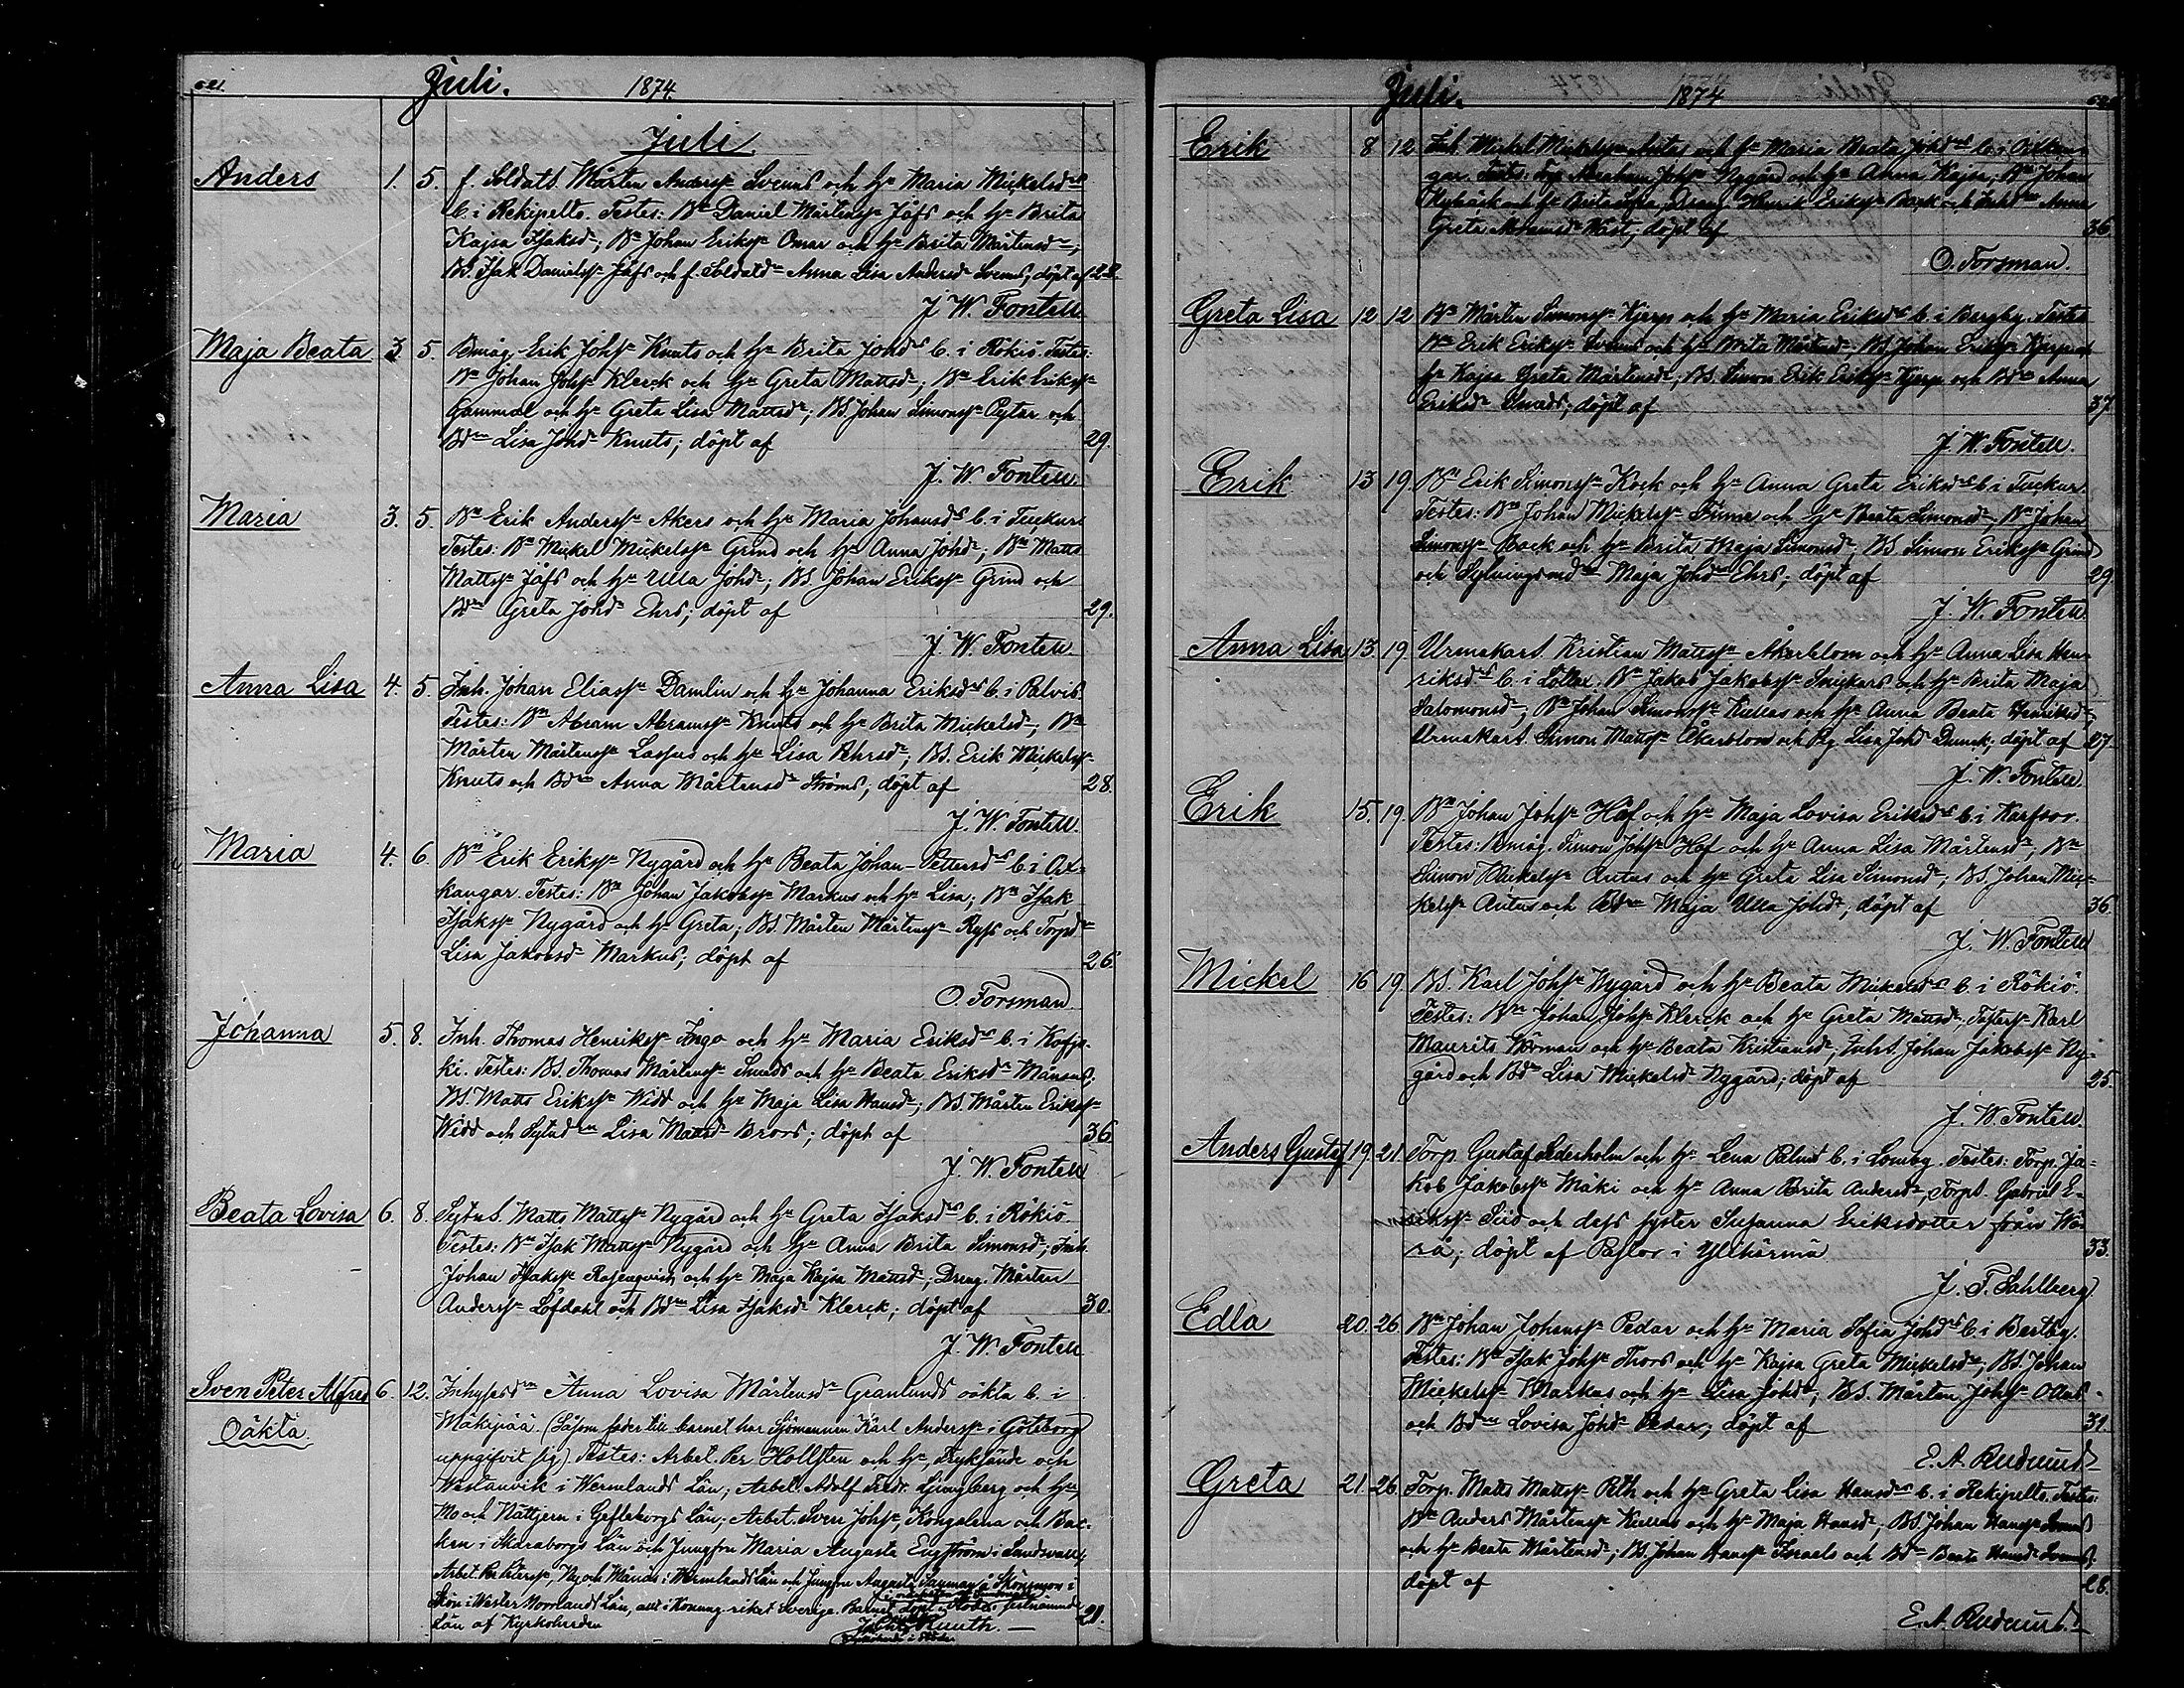 621. Juli. 1874.
Juli.
Anders 1. 5. f. Soldats. Mårten Anderss: Svenns och h: Maria Mickelsds
b. i Rekipelto. Testes: Bn Daniel Mårtenss: Jåfs och h: Brita
Kajsa Isaksd:; Bn Johan Erikss: Omar och h: Brita Mårtensd:;
BS. Isak Danielss: Jåfs och f. Soldatdn Anna Lisa Andersd: Svenns; döpt af
J. W. Fontell.
Maja Beata 3. 5. Bmåg. Erik Johss: Knuts och h: Brita Johds b. i Rökiö. Testes:
Bn Johan Johss: Klerck och h: Greta Mattsd:; Bn Erik Erikss:
Gammal och h: Greta Lisa Mattsd:; BS. Johan Simonss: och
Bdn Lisa Johd: Knuts; döpt af 29.
J. W. Fontell.
Maria 3. 5. Bn Erik Anderss: Akers och h: Maria Johansds b. i Tuckur.
Testes: Bn Mickel Mickelss: Grind och h: Anna Johd:; Bn Matts
Mattss: Jåfs och h: Ulla Johd:; BS. Johan Erikss: Grind och
Bdn Greta Johd: Ehrs; döpt af 29.
J. W. Fontell.
Anna Lisa 4. 5. Inh. Johan Eliass: Damlin och h: Johanna Eriksds b. i Palvis
Testes: Bn Abram Abramss: Knuts och h: Brita Mickelsd:; Bn
Mårten Mårtenss: Lassus och h: Lisa Pehrsd:; BS. Erik Mickelss:
Knuts och Bdn Anna Mårtensd: Ströms; döpt af 28.
J. W. Fontell.
Maria 4. 6. Bn Erik Erikss: Nygård och h: Beata Johan-Pettersds b. i Ox-
kangar. Testes: Bn Johan Jakobss: Markus och h: Lisa; Bn Isak
Isakss: Nygård och h: Greta; BS. Mårten Mårtenss: Ryss och Torpd:
Lisa Jakobsd: Markus; döpt af 26.
O. Forsman.
Johanna 5. 8. Inh. Thomas Henrikss: Ingo och h: Maria Eriksds b. i Kosjo-
ki. Testes: BS. Thomas Mårtenss: Smeds och h: Beata Eriksd: Månsus;
BS. Matts Erikss: Widd och h: Maja Lisa Hansd:; BS. Mårten Erikss:
Widd och Sytndn Lisa Mattsd: Brors; döpt af 36.
J. W. Fontell
Beata Lovisa 6. 8. Sytn.S. Matts Mattss: Nygård och h: Greta Isaksds b. i Rökiö.
Testes: Bn Isak Mattss: Nygård och h: Anna Brita Simonsd:; Inh.
Johan Isakss: Rosenqvist och h: Maja Kajsa Mattsd:; Dreng. Mårten
Anderss: Löfdahl och Bdn Lisa Isaksd: Klerck; döpt af 30.
J. W. Fontell
Sven Peter Alfred 6. 12. Inhysesdn Anna Lovisa Mårtensd: Granlunds oäkta b. i
Oäkta. Mäkipää. (Såsom fader till barnet har Sjömannen Karl Anderss: i Göteborg
uppgifvit sig). Testes: Arbet. Per Hollsten och h:, Fryksände och
Westanvik i Wermlands Län; Arbet. Adolf Fredr. Ljungberg och h:,
Mo och Nättjern i Gefleborgs Län; Arbet. Sven Johss:, Kongslena och Bac-
ken i Skaraborgs Län och Jungfru Maria Augusta Engström i Sundsvall;
Arbet. Per Peterss:, Ny och Månäs i Wermlands Län och Jungfru Augusta å Skönsmon i
Skön i Wester Norrlands Län, allt i Konung-riket Sverige. Barnet döpt i Stöde i sistnämnde
Län af Kyrkoherden 21.
Knuth.
Juli. 1874
Erik 8 12 Inh. Mickel Mickelss: Antus och h: Maria Beata Johds b. i Oxkan-
gar. Testes: Torp. Abraham Johss: Nygård och h: Anna Kajsa; Bn Johan
Nybäck och h: Brita Lisa; Dräng Henrik Erikss: Back och Inhdn Anna
Greta Abramsd: Wäst; döpt af 36
O. Forsman.
Greta Lisa 12 12 Bn Mårten Simonss: Kjerp och h: Maria Eriksds b. i Bergby. Testes
Bn Erik Erikss: Svenns och h: Brita Mårtensd:; BS. Johan Erikss: Kjerp och
h: Kajsa Greta Mårtensd:; BS. Simon Erik Erikss: Kjerp och Bdn Anna
Eriksd: Smeds; döpt af 37.
J. W. Fontell.
Erik 13 19. Bn Erik Simonss: Kock och h: Anna Greta Eriksds b. i Tuckur.
Testes: Bn Johan Mickelss: Finne och h: Beata Simonsd:; Bn Johan
Simonss: Back och h: Brita Maja Simonsd:; BS Simon Erikss: Grind
och Sytningsmdn Maja Johd: Ehrs; döpt af 29
J. W. Fontell.
Anna Lisa 13. 19 Urmakars. Kristian Mattss: Åkerblom och h: Anna Lisa Hen-
riksds b. i Lotlax. Bn Jakob Jakobss: Snickars och h: Brita Maja
Salomonsd:; Bn Johan Simonss: Kullas och h: Anna Beata Henriksd:
Urmakars. Simon Mattss: Åkerblom och Pig. Lisa Johd: Dunck; döpt af 27.
J. W. Fontell.
Erik 15. 19. Bn Johan Johss: Håf och h: Maja Lovisa Eriksds b. i Karfsor.
Testes: Bmåg. Simon Johss: Håf och h: Anna Lisa Mårtensd:; Bn
Simon Mickelss: Antus och h: Greta Lisa Simonsd:; BS. Johan Mic-
kelss: Antus och Bdn Maja Ulla Johd:; döpt af 36.
J. W. Fontell
Mickel 16 19. BS. Karl Johss: Nygård och h: Beata Mickelsds b. i Rökiö.
Testes: Bn Johan Johss: Klerck och h: Greta Mattsd:; Karl
Maurits och h: Beata Kristiansd:; Inh.S. Johan Jakobss: Ny-
gård och Bdn Lisa Mickelsd: Nygård; döpt af 25.
J. W. Fontell.
Anders Gustaf 19. 21. Torp. Gustaf Sederholm och h: Lena Palmd b. i Lomby. Testes: Torp. Ja-
kob Jakobss: Mäki och h: Anna Brita Andersd:; TorpS. Gabriel E-
rikss: Siid och dess syster Susanna Eriksdotter från Wö-
rå; döpt af Pastor i Ylihärmä 33.
J. F. Sahlberg
Edla 20. 26. Bn Johan Johanss: Pedar och h: Maria Sofia Johds b. i Bertby.
Testes: Bn Isak Johss: Thors och h: Kajsa Greta Mickelsd:; BS. Johan
Mickelss: Markus och h: Lisa Johd:; BS. Mårten Johss:
och Bdn Lovisa Johd: Pedar; döpt af 31.
E. A. Rudnäs
Greta 21. 26. Torp. Matts Mattss: Röh och h: Greta Lisa Hansds b. i Rekipelto. Testes:
Bn Anders Mårtenss: Kullas och h: Maja Hansd:; BS. Johan Hanss: Svenns
och h: Beata Mårtensd:; BS. Johan Hanss: Israels och Bdn Beata Hansd: Svenns
döpt af 28.